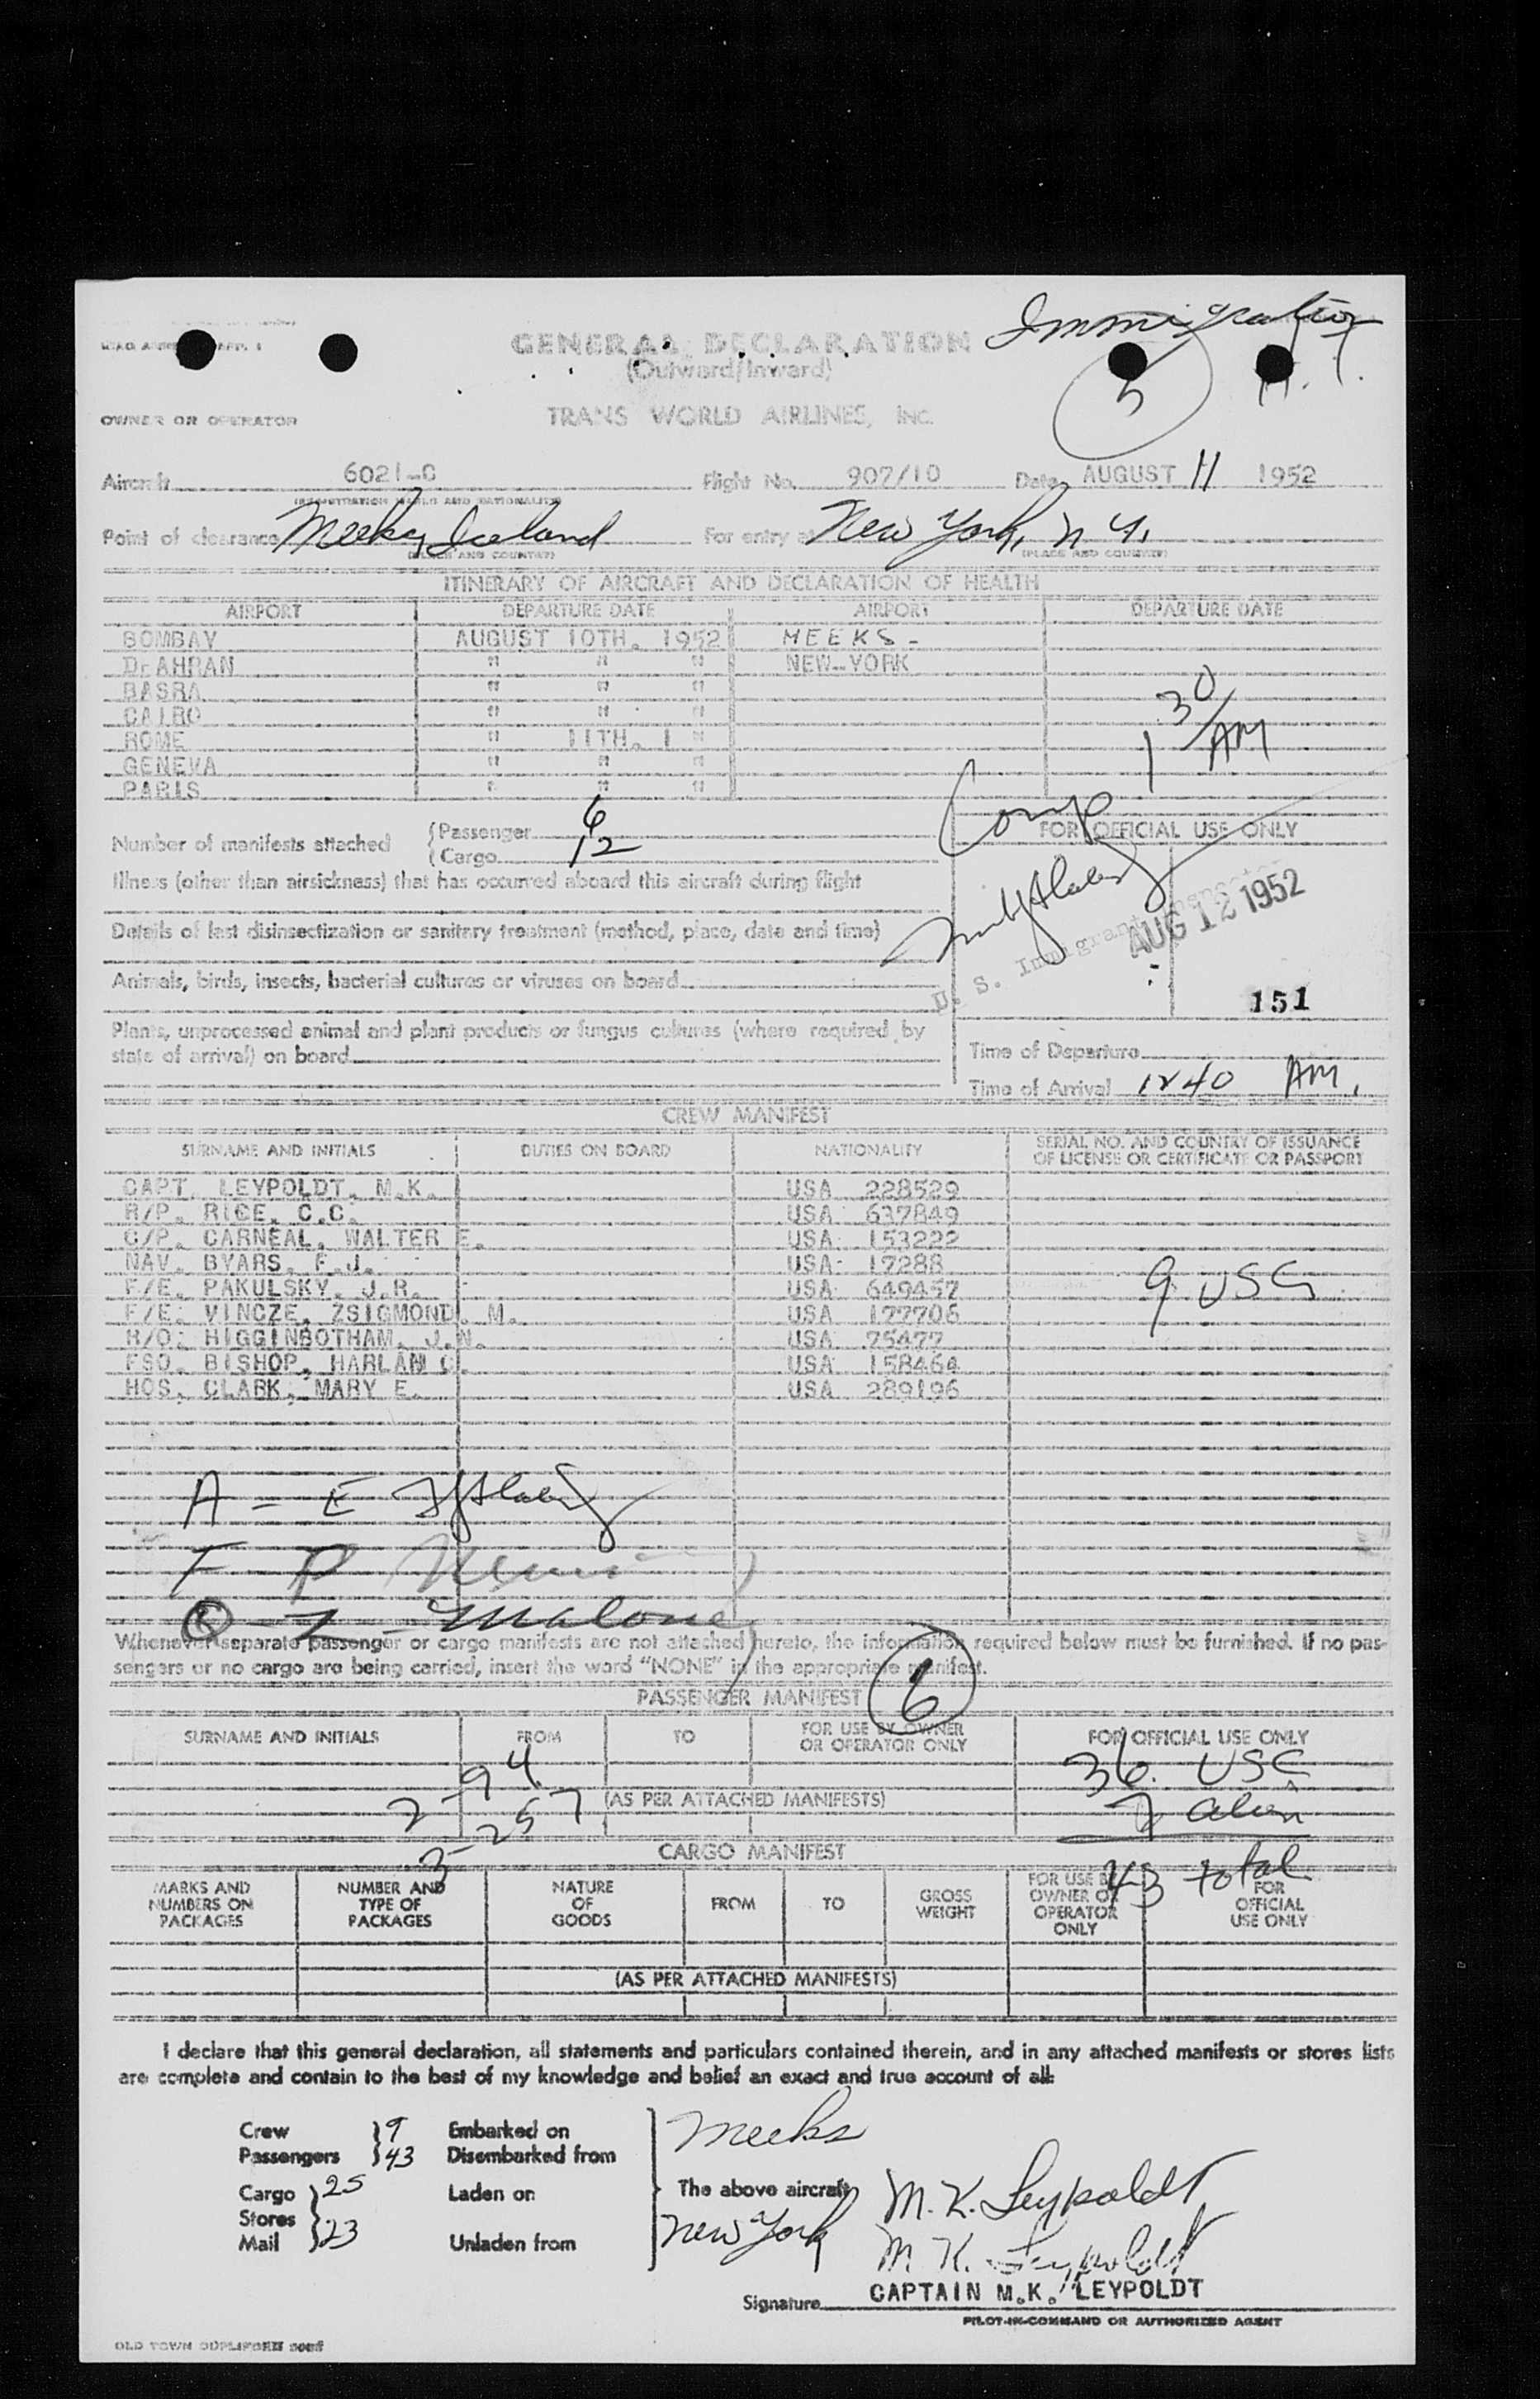 Immigration
GENERAL DECLARATION
(Outward/Inward)
5
OWNER OR OPERATOR TRANS WORLD AIRLINES, INC.
Aircraft 6021-C Flight No. 907/10 Date AUGUST 11 1952
(REGISTRATION MARKS AND NATIONALITY)
Point of clearance Meeks, Iceland For entry at New York, N.Y.
(PLACE AND COUNTRY) (PLACE AND COUNTRY)
ITINERARY OF AIRCRAFT AND DECLARATION OF HEALTH
AIRPORT DEPARTURE DATE AIRPORT DEPARTURE DATE
BOMBAY AUGUST 10TH. 1952 MEEKS -
DHAHRAN " " " NEW YORK
BASRA " " "
CAIRO " " "
ROME " 11TH. "
GENEVA " " "
PARIS " " "
1 30/AM
Comp
Number of manifests attached {Passenger 6
(Cargo 12
FOR OFFICIAL USE ONLY
Illness (other than airsickness) that has occurred aboard this aircraft during flight
Details of last disinsectization or sanitary treatment (method, place, date and time)
U. S. Immigrant Inspector
AUG 12 1952
Animals, birds, insects, bacterial cultures or viruses on board
151
Plants, unprocessed animal and plant products or fungus cultures (where required by
state of arrival) on board
Time of Departure
Time of Arrival 1240 AM.
CREW MANIFEST
SURNAME AND INITIALS DUTIES ON BOARD NATIONALITY SERIAL NO. AND COUNTRY OF ISSUANCE
OF LICENSE OR CERTIFICATE OR PASSPORT
CAPT. LEYPOLDT, M.K. USA 228529
R/P. RICE, C.C. USA 637849
C/P. CARNEAL, WALTER E. USA 153222
NAV. BYARS, F.J. USA 17288
F/E. PAKULSKY, J.R. USA 649457
F/E. VINCZE, ZSIGMOND M. USA 177706
R/O. HIGGINBOTHAM, J.N. USA 75477
FSO. BISHOP, HARLAN C. USA 158464
HOS. CLARK, MARY E. USA 289196
9 USC
A - E
F P
C - I - Malone
Whenever separate passenger or cargo manifests are not attached hereto, the information required below must be furnished. If no pas-
sengers or no cargo are being carried, insert the word "NONE" in the appropriate manifest.
6
PASSENGER MANIFEST
SURNAME AND INITIALS FROM TO FOR USE BY OWNER
OR OPERATOR ONLY FOR OFFICIAL USE ONLY
36 USC
(AS PER ATTACHED MANIFESTS)
7 alien
43 total
CARGO MANIFEST
MARKS AND
NUMBERS ON
PACKAGES
NUMBER AND
TYPE OF
PACKAGES
NATURE
OF
GOODS
FROM TO GROSS
WEIGHT
FOR USE BY
OWNER OR
OPERATOR
ONLY
FOR
OFFICIAL
USE ONLY
(AS PER ATTACHED MANIFESTS)
I declare that this general declaration, all statements and particulars contained therein, and in any attached manifests or stores lists
are complete and contain to the best of my knowledge and belief an exact and true account of all:
Crew 9 Embarked on Meeks
Passengers 43 Disembarked from
Cargo 25 Laden on The above aircraft M. K. Leypoldt
Stores
Mail 23 Unladen from New York M. K. Leypoldt
Signature CAPTAIN M.K. LEYPOLDT
PILOT-IN-COMMAND OR AUTHORIZED AGENT
OLD TOWN DUPLIFORM